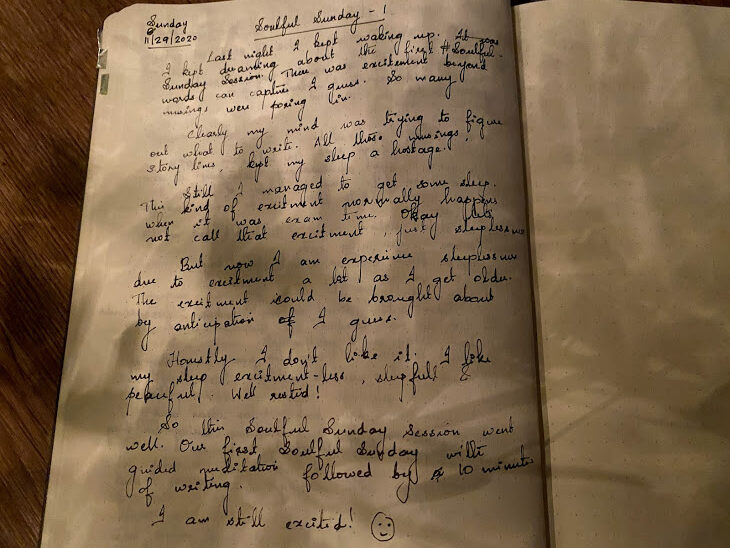 Sunday
11/29/2020
Soulful Sunday - 1
Last night I kept waking up. It was
I kept dreaming about the first #Soulful-
Sunday Session. There was excitement beyond
words can capture I guess. So many
musings were poring in.
Clearly my mind was trying to figure
out what to write. All those musings,
story lines, kept my sleep a hostage.
Still I managed to get some sleep.
This kind of excitment normally happens
when it was exam time. Okay lets
not call that excitment, just sleeplessness
But now I am experience sleeplessness
due to excitment a lot as I get older.
The excitment could be brought about
by anticipation of I guess.
Honestly I don't like it. I like
my sleep excitment-less, sleepfull &
peaceful. Well rested!
So this Soulful Sunday Session went
well. Our first Soulful Sunday with
guided meditation followed by 10 minutes
of writing.
I am still excited!